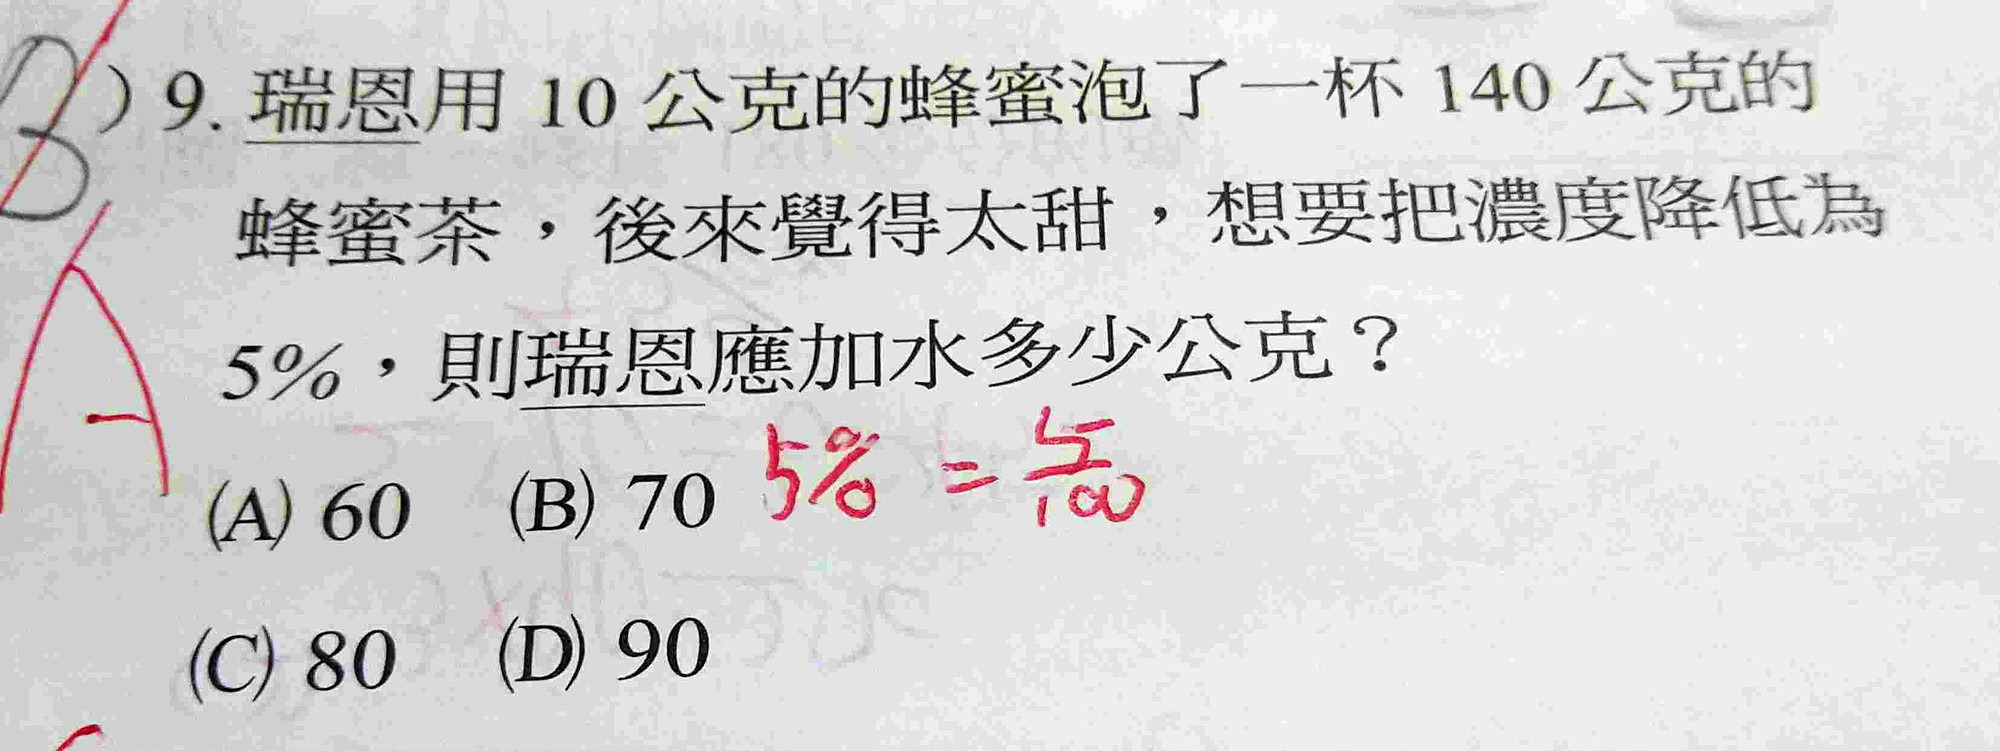 B)9. 瑞恩用 10 公克的蜂蜜泡了一杯 140 公克的
蜂蜜茶，後來覺得太甜，想要把濃度降低為
5%，則瑞恩應加水多少公克？
A
(A) 60 (B) 70 5% = 5/100
(C) 80 (D) 90